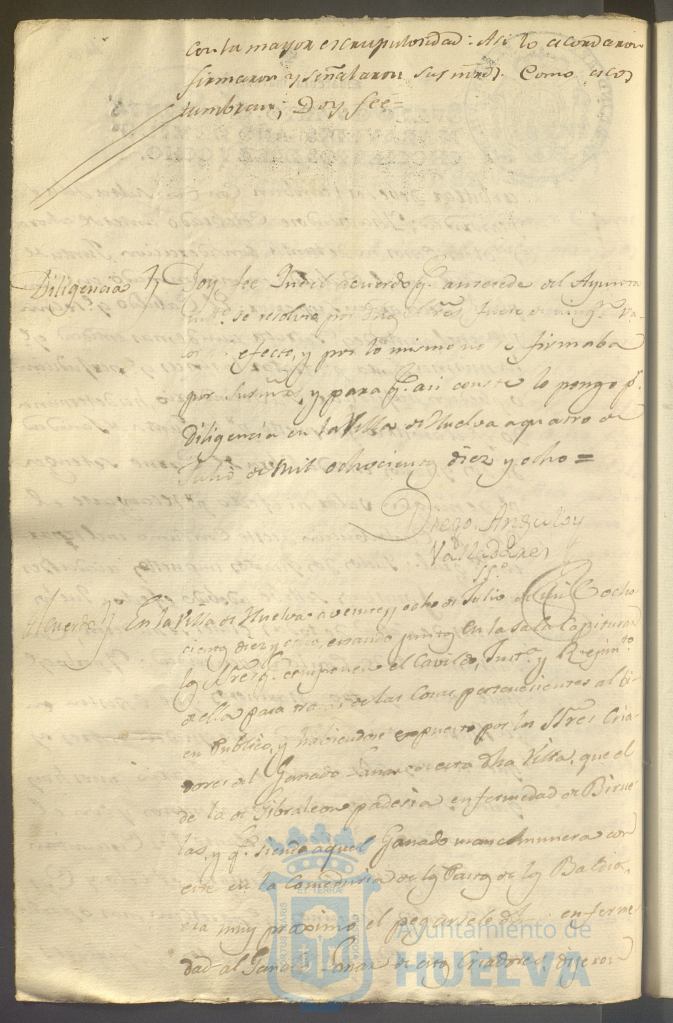 con la mayor escrupulosidad. Asi lo acordaron
firmaron y señalaron sus mrds. Como acos
tumbran; Doy feé=
Diligencia Doy fee qe. el acuerdo qe. antecede del Ayunta
mto. se resolvio por dhos Sres. fuese de ning. va-
lor ni efecto, y por lo mismo no se firmaba
por sus mrds, y para qe. asi conste lo pongo pr.
diligencia en la Villa de Huelva a quatro de
Julio de mil ochocientos diez y ocho =
Diego Angulo y
Valladares
Acuerdo En la Villa de Huelva a veinte y ocho de Julio de mil ocho
cientos diez y ocho, estando juntos en la Sala Capitular
los Sres. qe. componen el Cavildo, Justa. y Rejimto.
de ella para tratar de las Cosas pertenecientes al bi-
en Publico, y habiendose expuesto por los Sres Cria-
dores del Ganado Lanar de esta dha Villa, que el
de la de Gibraleon padesia enfermedad de Birue
las, y qe. siendo aquel Ganado mancomunero con
este en la Comeduria de los Pastos de los Baldios,
era muy proximo el pegarsele dha enferme
dad al Ganado Lanar de estos Criadores, dijeron
Ayuntamiento de
HUELVA